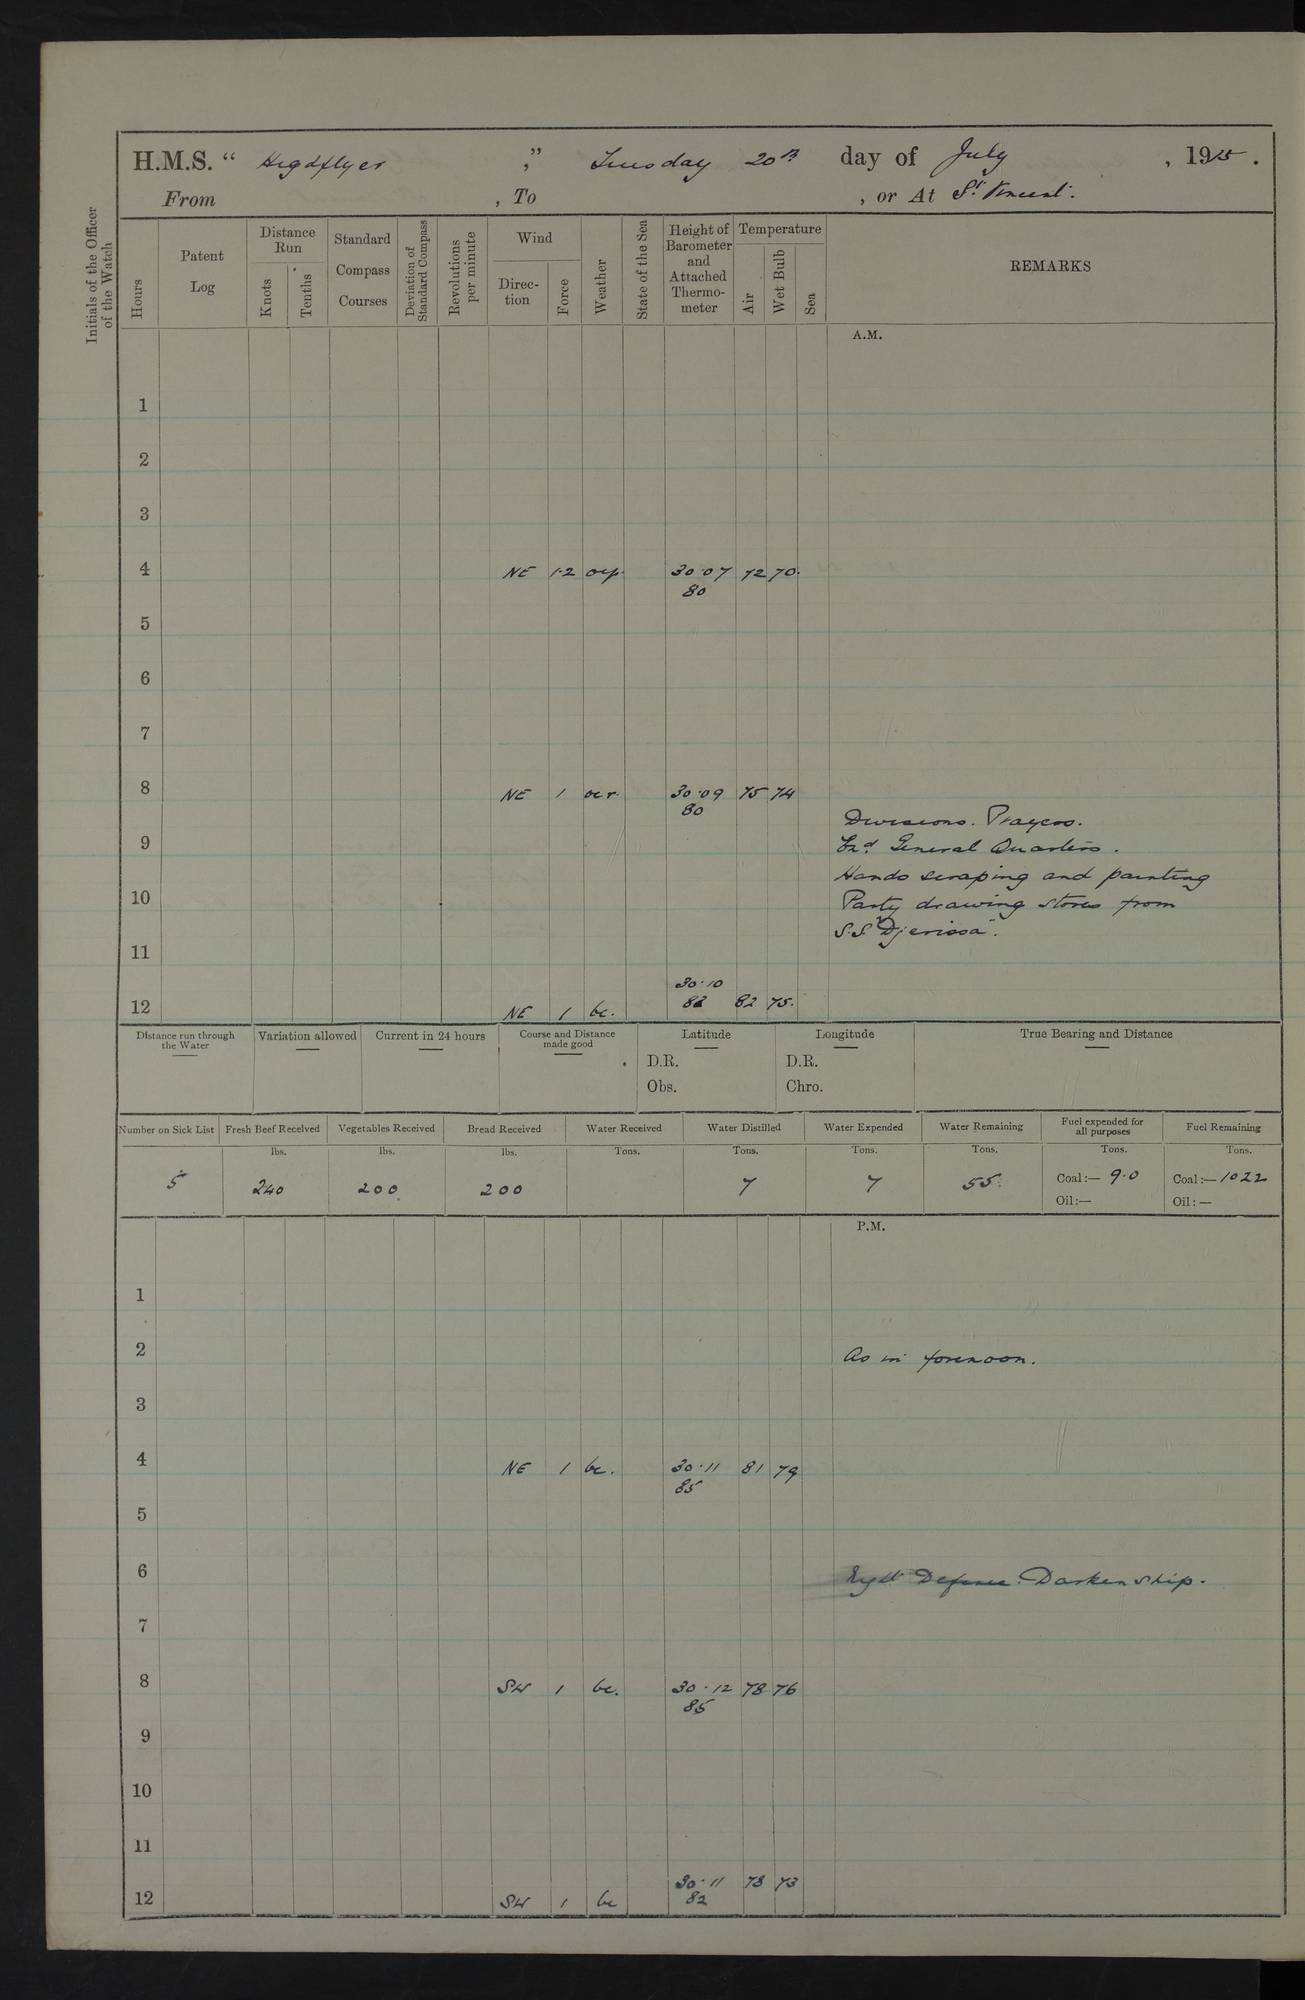 H.M.S. “ Highflyer ,” Tuesday 20th day of July , 1915 .
From , To , or At St. Vincent.
Initials of the Officer of the Watch
Hours
Patent Log
Distance Run
Knots
Tenths
Standard Compass Courses
Deviation of Standard Compass
Revolutions per minute
Wind
Direc- tion
Force
Weather
State of the Sea
Height of Barometer and Attached Thermo- meter
Temperature
Air
Wet Bulb
Sea
REMARKS
A.M.
1
2
3
4 NE 1·2 ocp. 30·07 72 70.
80
5
6
7
8 NE 1 ocr. 30·09 75 74
80
Divisions. Prayers.
9 Exd. General Quarters.
Hands scraping and painting
10 Party drawing stores from
S.S. "Djerissa".
11
30·10
12 NE 1 bc. 82 75.
Distance run through the Water
Variation allowed
Current in 24 hours
Course and Distance made good
Latitude
D.R.
Obs.
Longitude
D.R.
Chro.
True Bearing and Distance
Number on Sick List Fresh Beef Received Vegetables Received Bread Received Water Received Water Distilled Water Expended Water Remaining Fuel expended for all purposes Fuel Remaining
lbs. lbs. lbs. Tons. Tons. Tons. Tons. Tons. Tons.
5 240 200 200 7 7 55. Coal :— 9·0 Coal :— 1022
Oil :— Oil : —
P.M.
1
2 As in forenoon.
3
4 NE 1 bc. 30·11 81 79
85
5
6 Night Defence. Darken ship.
7
8 SW 1 bc. 30·12 78 76
85
9
10
11
30·11 78 73
12 SW 1 bc 82